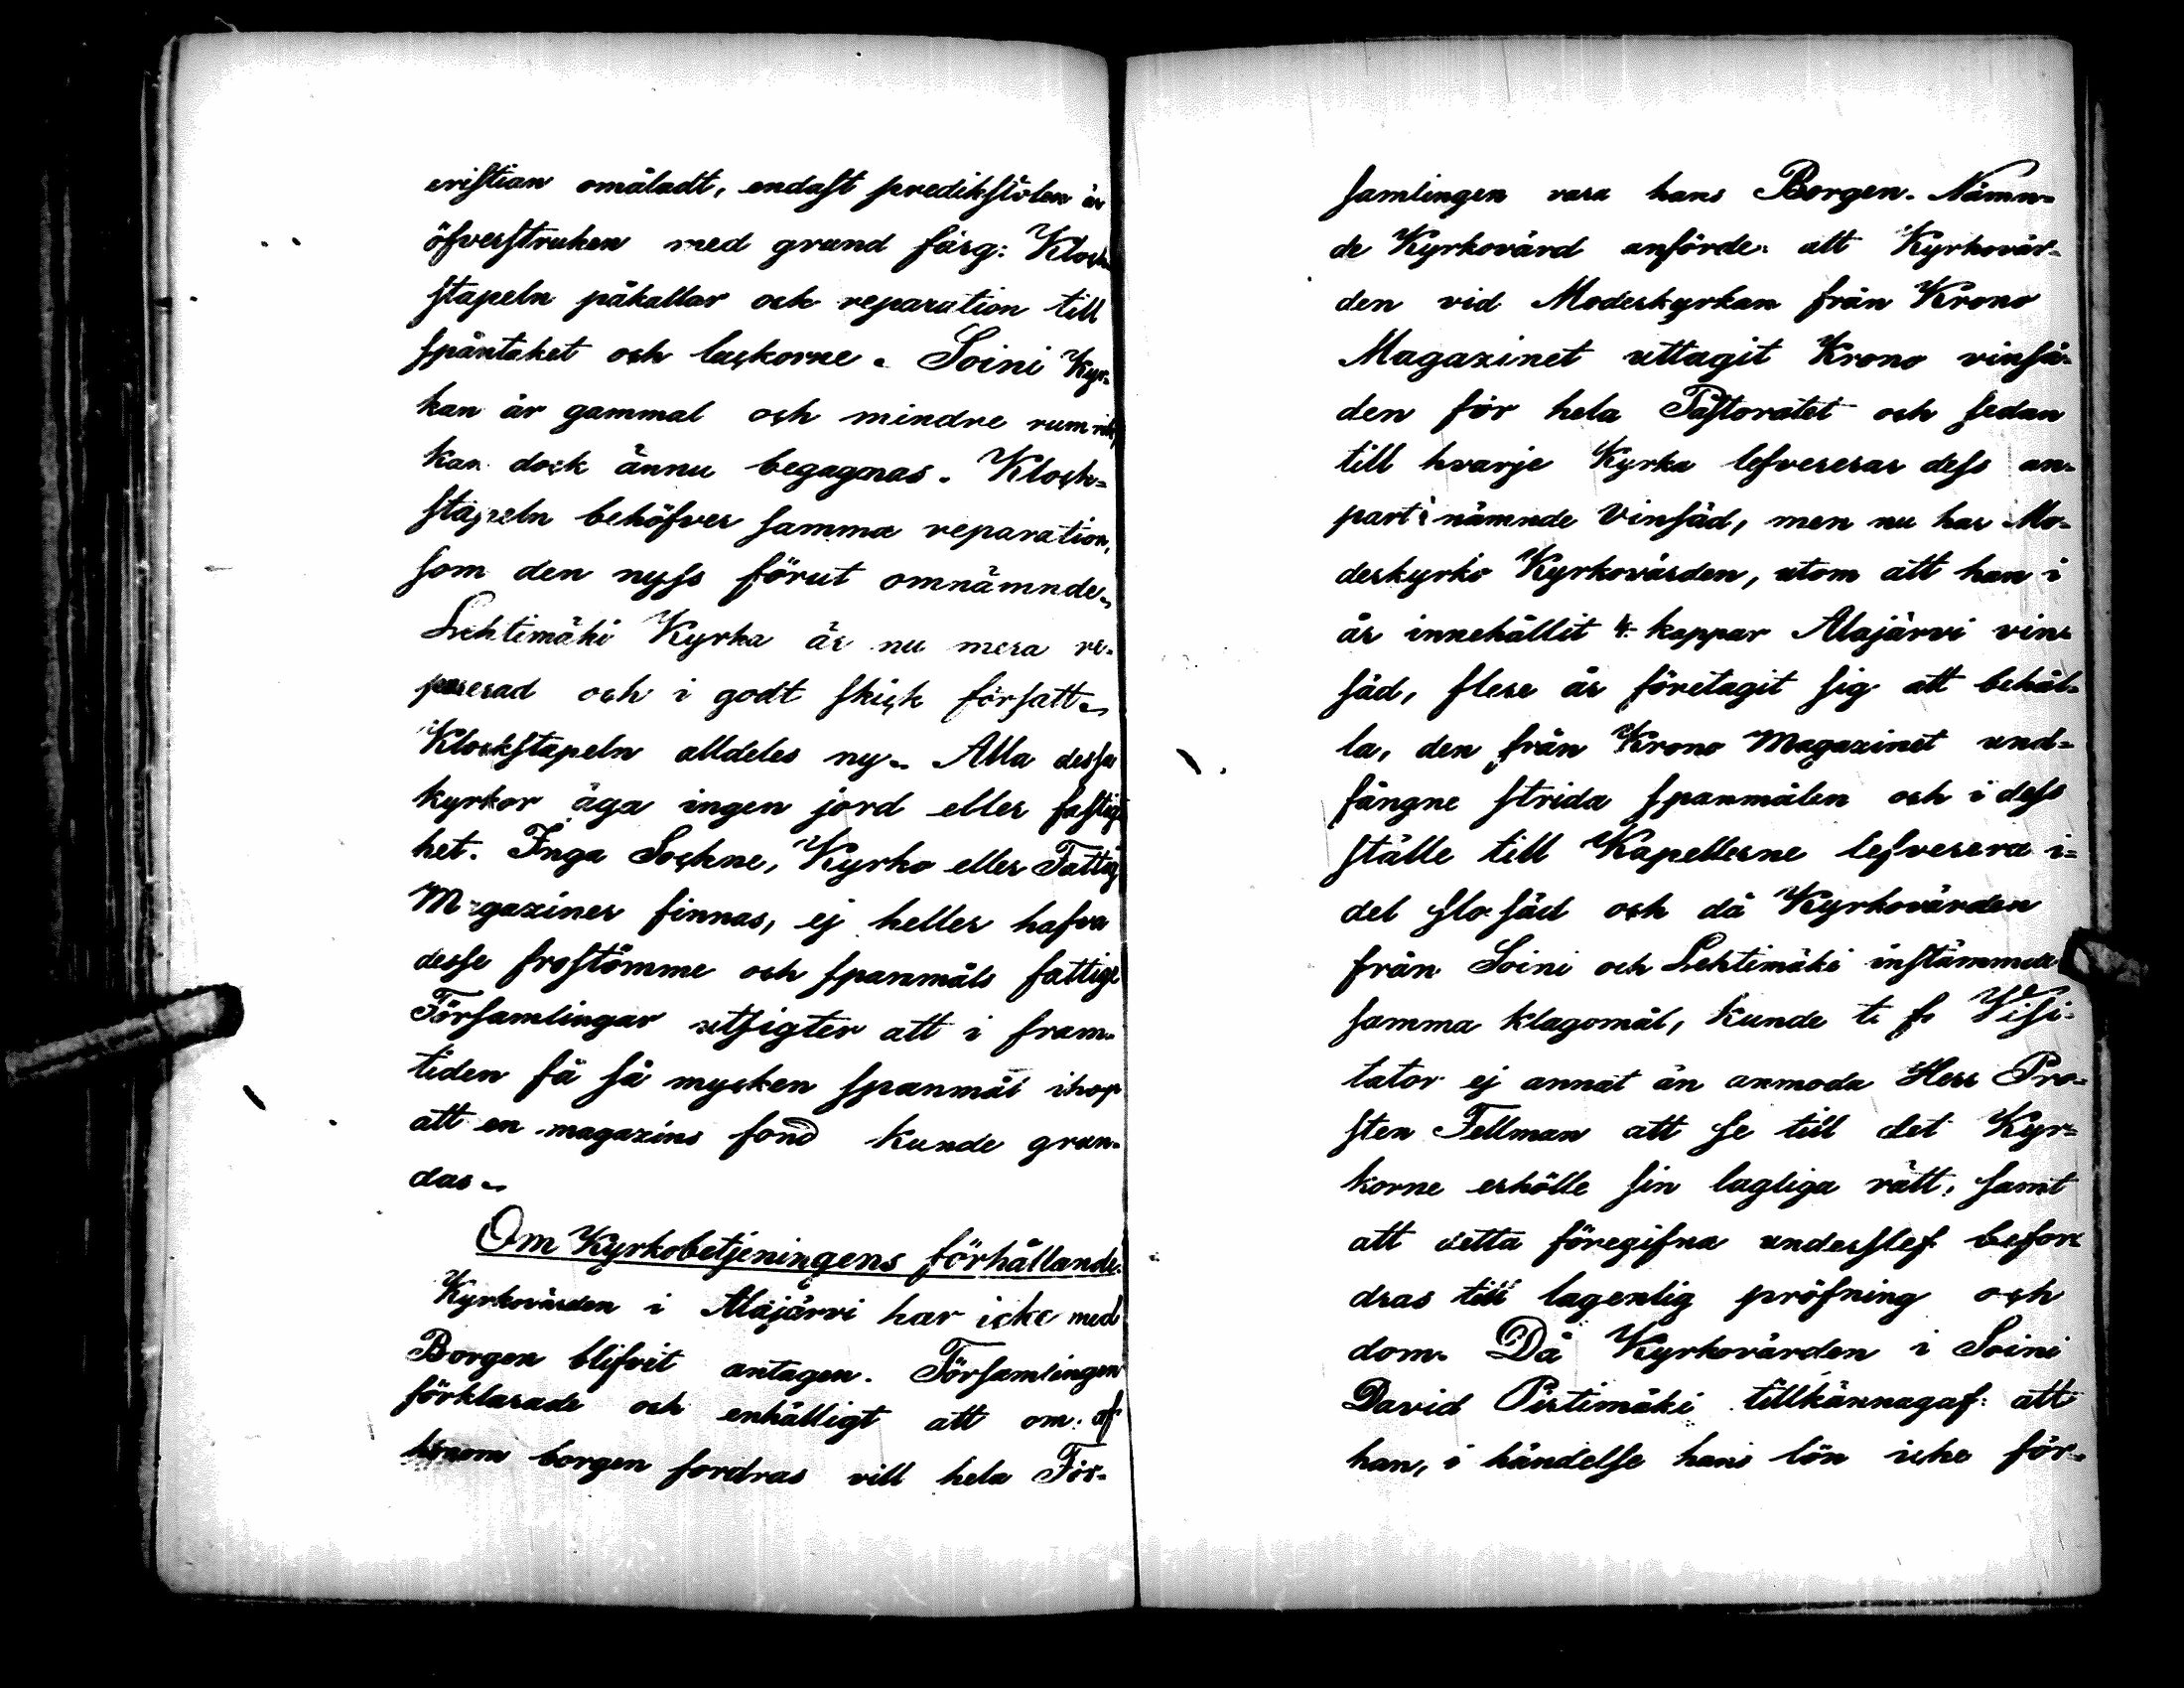 cristian omåladt, endast predikstolen är
öfverstruken med grund färg: Klock
stapeln påkallar och reparation till
spåntaket och luckorne. Soini Kyr-
kan är gammal och mindre rum
kan dock ännu begagnas. Klock-
stapeln behöfver samma reparation,
som den nyss förut omnämnde.
Lehtimäki Kyrka är nu mera re-
parerad och i godt skick försatt.
Klockstapeln alldeles ny. Alla dessa
kyrkor äga ingen jord eller fastig
het. Inga Sockne, Kyrko eller Fattig
Magaziner finnas, ej heller hafva
desse frostömme och spanmåls fattige
Församlingar utsigter att i fram-
tiden få så mycken spanmål ihop
att en magazins fond kunde grun-
das.
Om Kyrkobetjeningens förhållande.
Kyrkovärden i Alajärvi har icke med
Borgen blifvit antagen. Församlingen
förklarade och enhälligt att om af
honom borgen fordras vill hela För-
samlingen vara hans Borgen. Nämn-
de Kyrkovärd anförde: att Kyrkovär-
den vid Moderkyrkan från Krono
Magazinet uttagit Krono vinsä-
den för hela Pastoratet och sedan
till hvarje Kyrka lefvererar dess an-
part i nämnde Vinsäd, men nu har Mo-
derkyrko Kyrkovärden, utom att han i
år innehållit 4 kappar Alajärvi vin-
säd, flere år företagit sig att behål-
la, den från Krono Magazinet und-
fångne strida spanmålen och i dess
ställe till Kapellerne lefverera i-
del slo säd och då Kyrkovärden
från Soini och Lehtimäki instämmde
samma klagomål, kunde t. f. Visi-
tator ej annat än anmoda Herr Pro-
sten Fellman att se till det Kyr-
korne erhölle sin lagliga rätt, samt
att detta föregifna underslef befor-
dras till lagenlig pröfning och
dom. Då Kyrkovärden i Soini
David Pertimäki tillkännagaf: att
han, i händelse hans lön icke för-